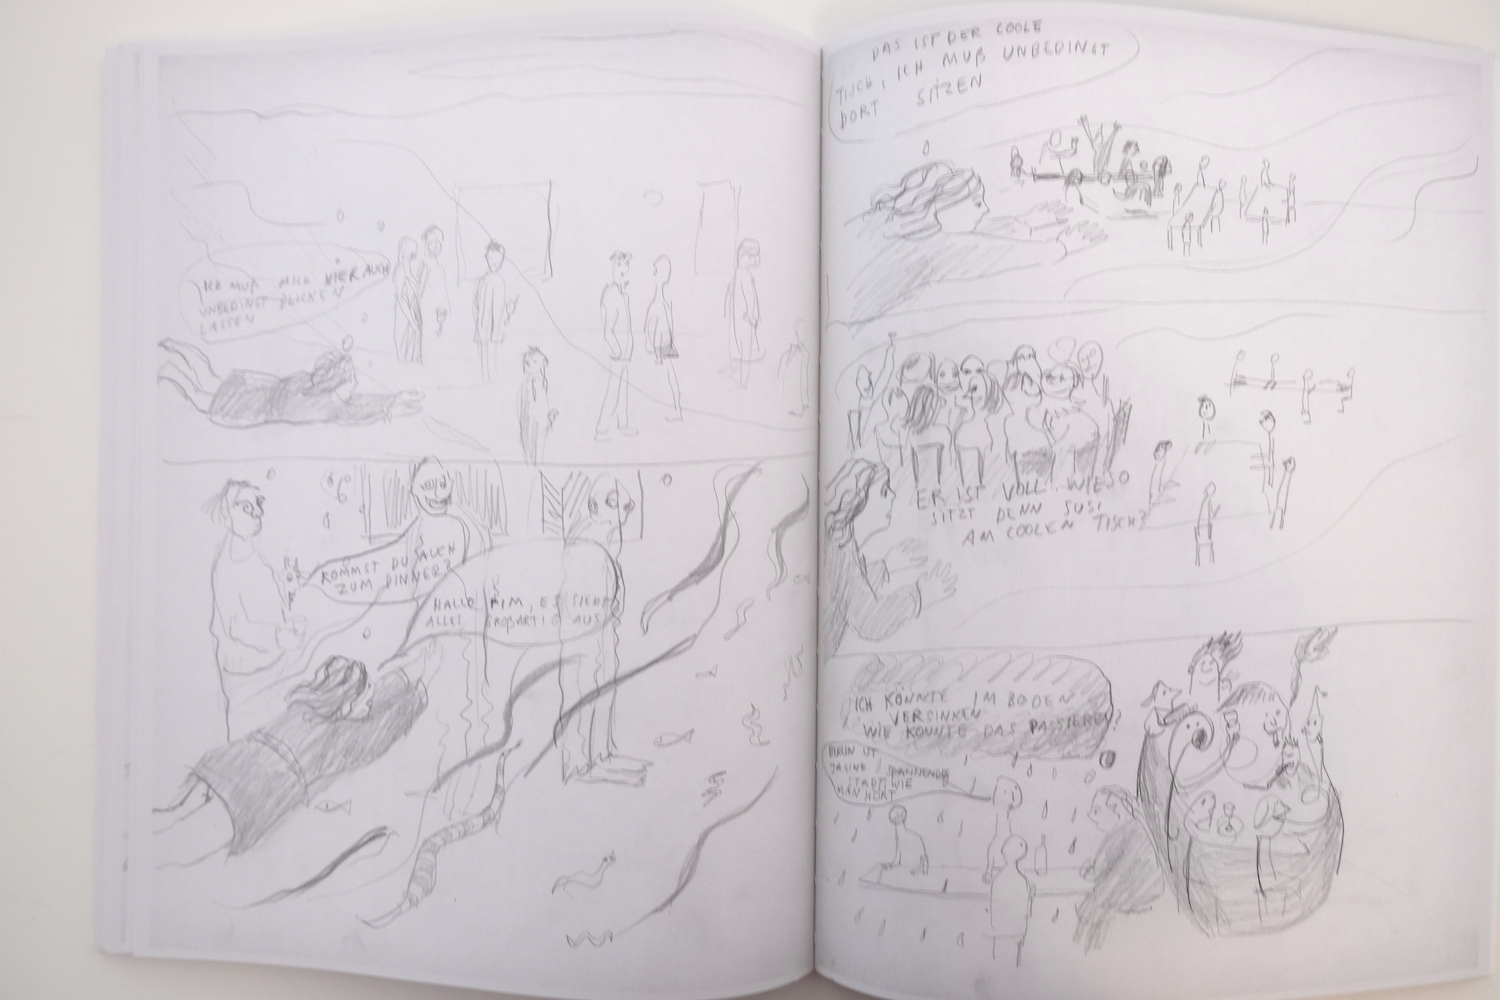 ICH MUß MICH HIER AUCH
UNBEDINGT BLICKEN
LASSEN
KOMMST DU AUCH
ZUM DINNER?
HALLO KIM, ES SIEHT
ALLES GROßARTIG AUS
DAS IST DER COOLE
TISCH, ICH MUß UNBEDINGT
DORT SITZEN
ER IST VOLL. WIESO
SITZT DENN SUSI
AM COOLEN TISCH?
ICH KÖNNTE IM BODEN
VERSINKEN
WIE KONNTE DAS PASSIEREN?
BERLIN IST
SPANNENDE
STADT WIE
MAN HÖRT